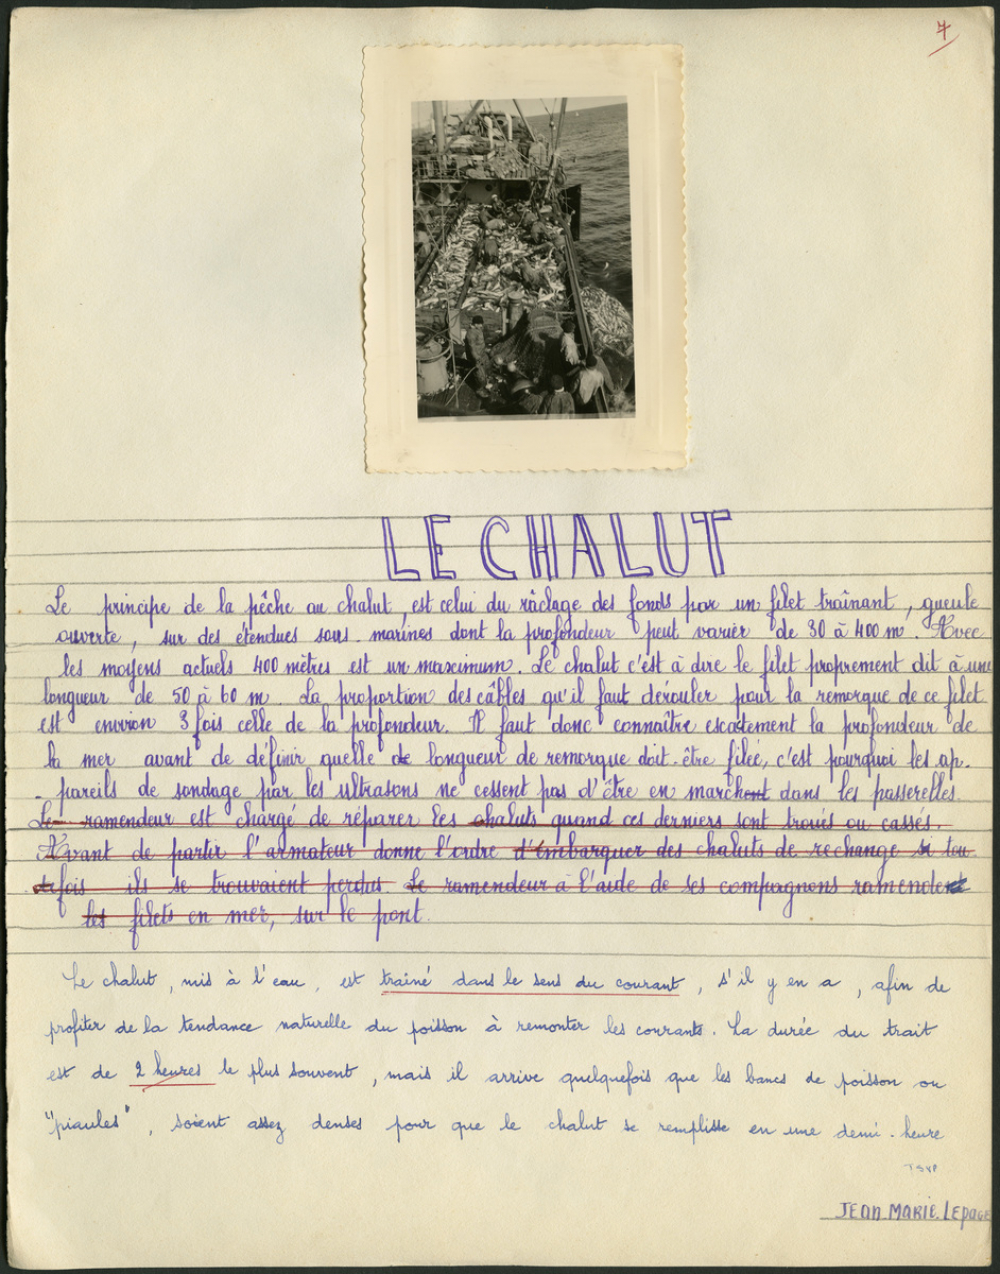 7
LE CHALUT
Le principe de la pêche au chalut, est celui du râclage des fonds par un filet traînant, gueule
ouverte, sur des étendues sous-marines dont la profondeur peut varier de 30 à 400 m. Avec
les moyens actuels 400 mètres est un maximum. Le chalut c'est à dire le filet proprement dit à une
longueur de 50 à 60 m. La proportion des câbles qu'il faut dérouler pour la remorque de ce filet
est environ 3 fois celle de la profondeur. Il faut donc connaître escatement la profondeur de
la mer avant de définir quelle de longueur de remorque doit-être filée, c'est pourquoi les ap-
-pareils de sondage par les ultrasons ne cessent pas d'être en marchent dans les passerelles.
Le ramendeur est chargé de réparer les chaluts quand ces derniers sont troués ou cassés.
Avant de partir l'armateur donne l'ordre d'embarquer des chaluts de rechange si tou-
-tefois ils se trouvaient perdus Le ramendeur à l'aide de ses compagnons ramendent
les filets en mer, sur le pont.
Le chalut, mis à l'eau, est traîné dans le sens du courant, s'il y en a, afin de
profiter de la tendance naturelle du poisson à remonter les courants. La durée du trait
est de 2 heures le plus souvent, mais il arrive quelquefois que les bancs de poisson ou
"piaules", soient assez denses pour que le chalut se remplisse en une demi-heure
TSVP
JEAN.MARIE.LEPAGE